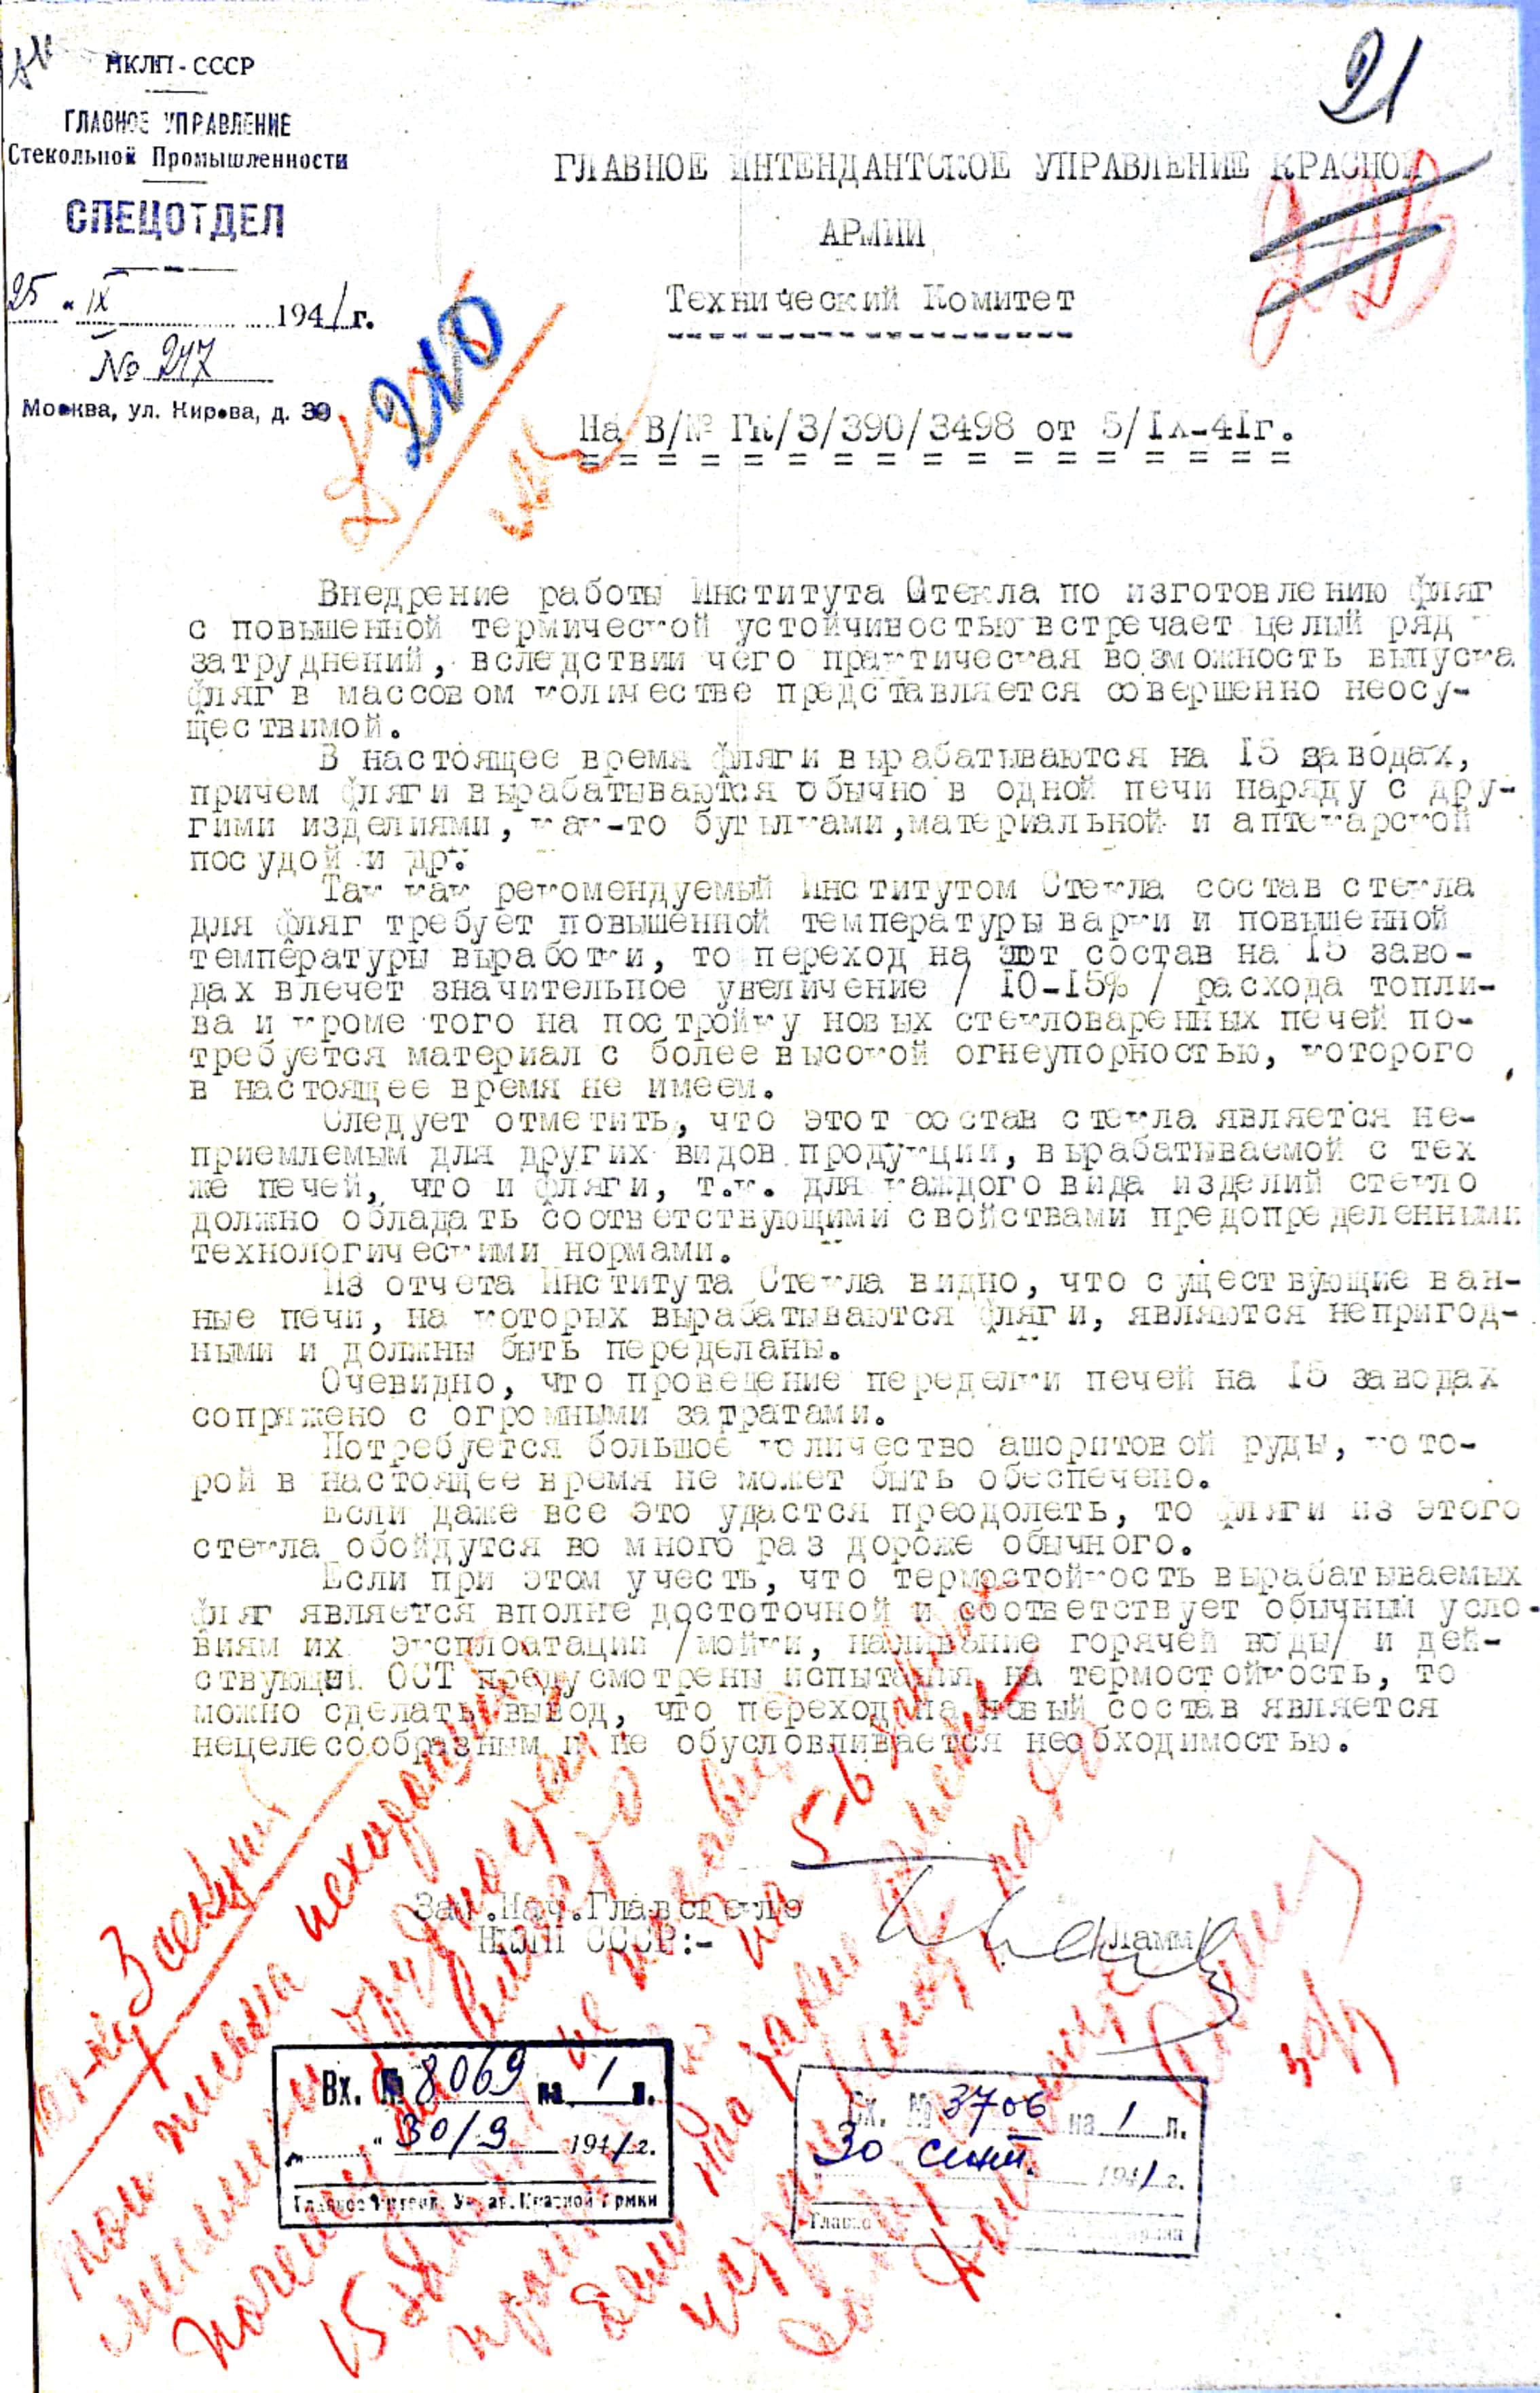 НКЛП - СССР
ГЛАВНОЕ УПРАВЛЕНИЕ
Стекольной Промышленности
СПЕЦОТДЕЛ
25 " IX 1941 г.
№ 277
Москва, ул. Кирова, д. 39
21
ГЛАВНОЕ ИНТЕНДАНТСКОЕ УПРАВЛЕНИЕ КРАСНОЙ
АРМИИ
Технический Комитет
210
На В/№ ГК/3/390/3498 от 5/IX-41г.
Внедрение работы Института Стекла по изготовлению фляг
с повышенной термической устойчивостью встречает целый ряд
затруднений, вследствии чего практическая возможность выпуска
фляг в массовом количестве представляется совершенно неосу-
ществимой.
В настоящее время фляги вырабатываются на 15 заводах,
причем фляги вырабатываются обычно в одной печи наряду с дру-
гими изделиями, как-то бутылками, материальной и аптекарской
посудой и др.
Так как рекомендуемый Институтом Стекла состав стекла
для фляг требует повышенной температуры варки и повышенной
температуры выработки, то переход на этот состав на 15 заво-
дах влечет значительное увеличение / 10-15% / расхода топли-
ва и кроме того на постройку новых стекловаренных печей по-
требуется материал с более высокой огнеупорностью, которого
в настоящее время не имеем.
Следует отметить, что этот состав стекла является не-
приемлемым для других видов продукции, вырабатываемой с тех
же печей, что и фляги, т.к. для каждого вида изделий стекло
должно обладать соответствующими свойствами предопределенными
технологическими нормами.
Из отчета Института Стекла видно, что существующие ван-
ные печи, на которых вырабатываются фляги, являются непригод-
ными и должны быть переделаны.
Очевидно, что проведение переделки печей на 15 заводах
сопряжено с огромными затратами.
Потребуется большое количество ашоритовой руды, кото-
рой в настоящее время не может быть обеспечено.
Если даже все это удастся преодолеть, то фляги из этого
стекла обойдутся во много раз дороже обычного.
Если при этом учесть, что термостойкость вырабатываемых
фляг является вполне достоточной и соответствует обычным усло-
виям их эксплоатации /мойки, наливание горячей воды/ и дей-
ствующим ОСТ предусмотрены испытания на термостойкость, то
можно сделать вывод, что переход на новый состав является
нецелесообразным и не обусловливается необходимостью.
Зам.Нач.Главстекло
НКЛП СССР:-
Ламм
Вх. № 8069 на 1 л.
" 30/9 1941 г.
Главное Интенд. Управ. Красной Армии
Вх. № 3706 на 1 л.
30 сент. 1941 г.